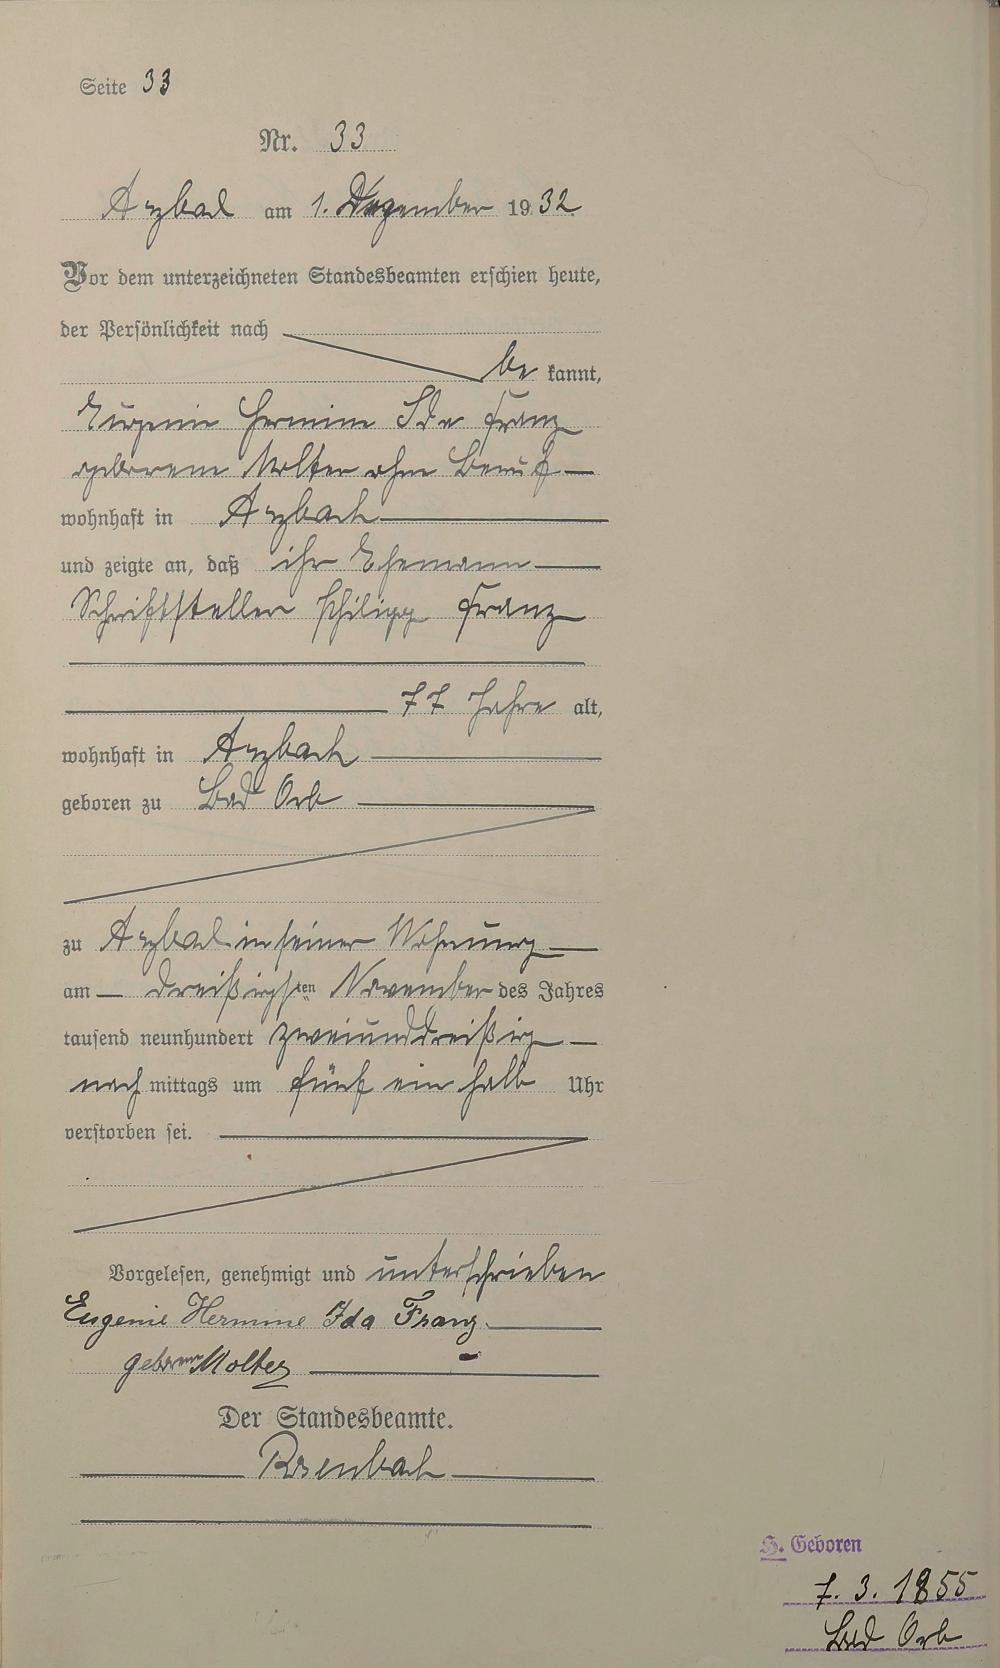 Seite 33
Nr. 33
Arzbach am 1. Dezember 1932
Vor dem unterzeichneten Standesbeamten erschien heute,
der Persönlichkeit nach
be kannt,
Eugenie Hermine Ida Franz
geborene Molter ohne Beruf
wohnhaft in Arzbach
und zeigte an, daß ihr Ehemann
Schriftsteller Philipp Franz
77 Jahre alt,
wohnhaft in Arzbach
geboren zu Bad Orb
zu Arzbach in seiner Wohnung
am dreißigsten November des Jahres
tausend neunhundert zweiunddreißig
nach mittags um fünf ein halb Uhr
verstorben sei.
Vorgelesen, genehmigt und unterschrieben
Eugenie Hermine Ida Franz
geborene Molter
Der Standesbeamte.
H. Geboren
7. 3. 1855
Bad Orb